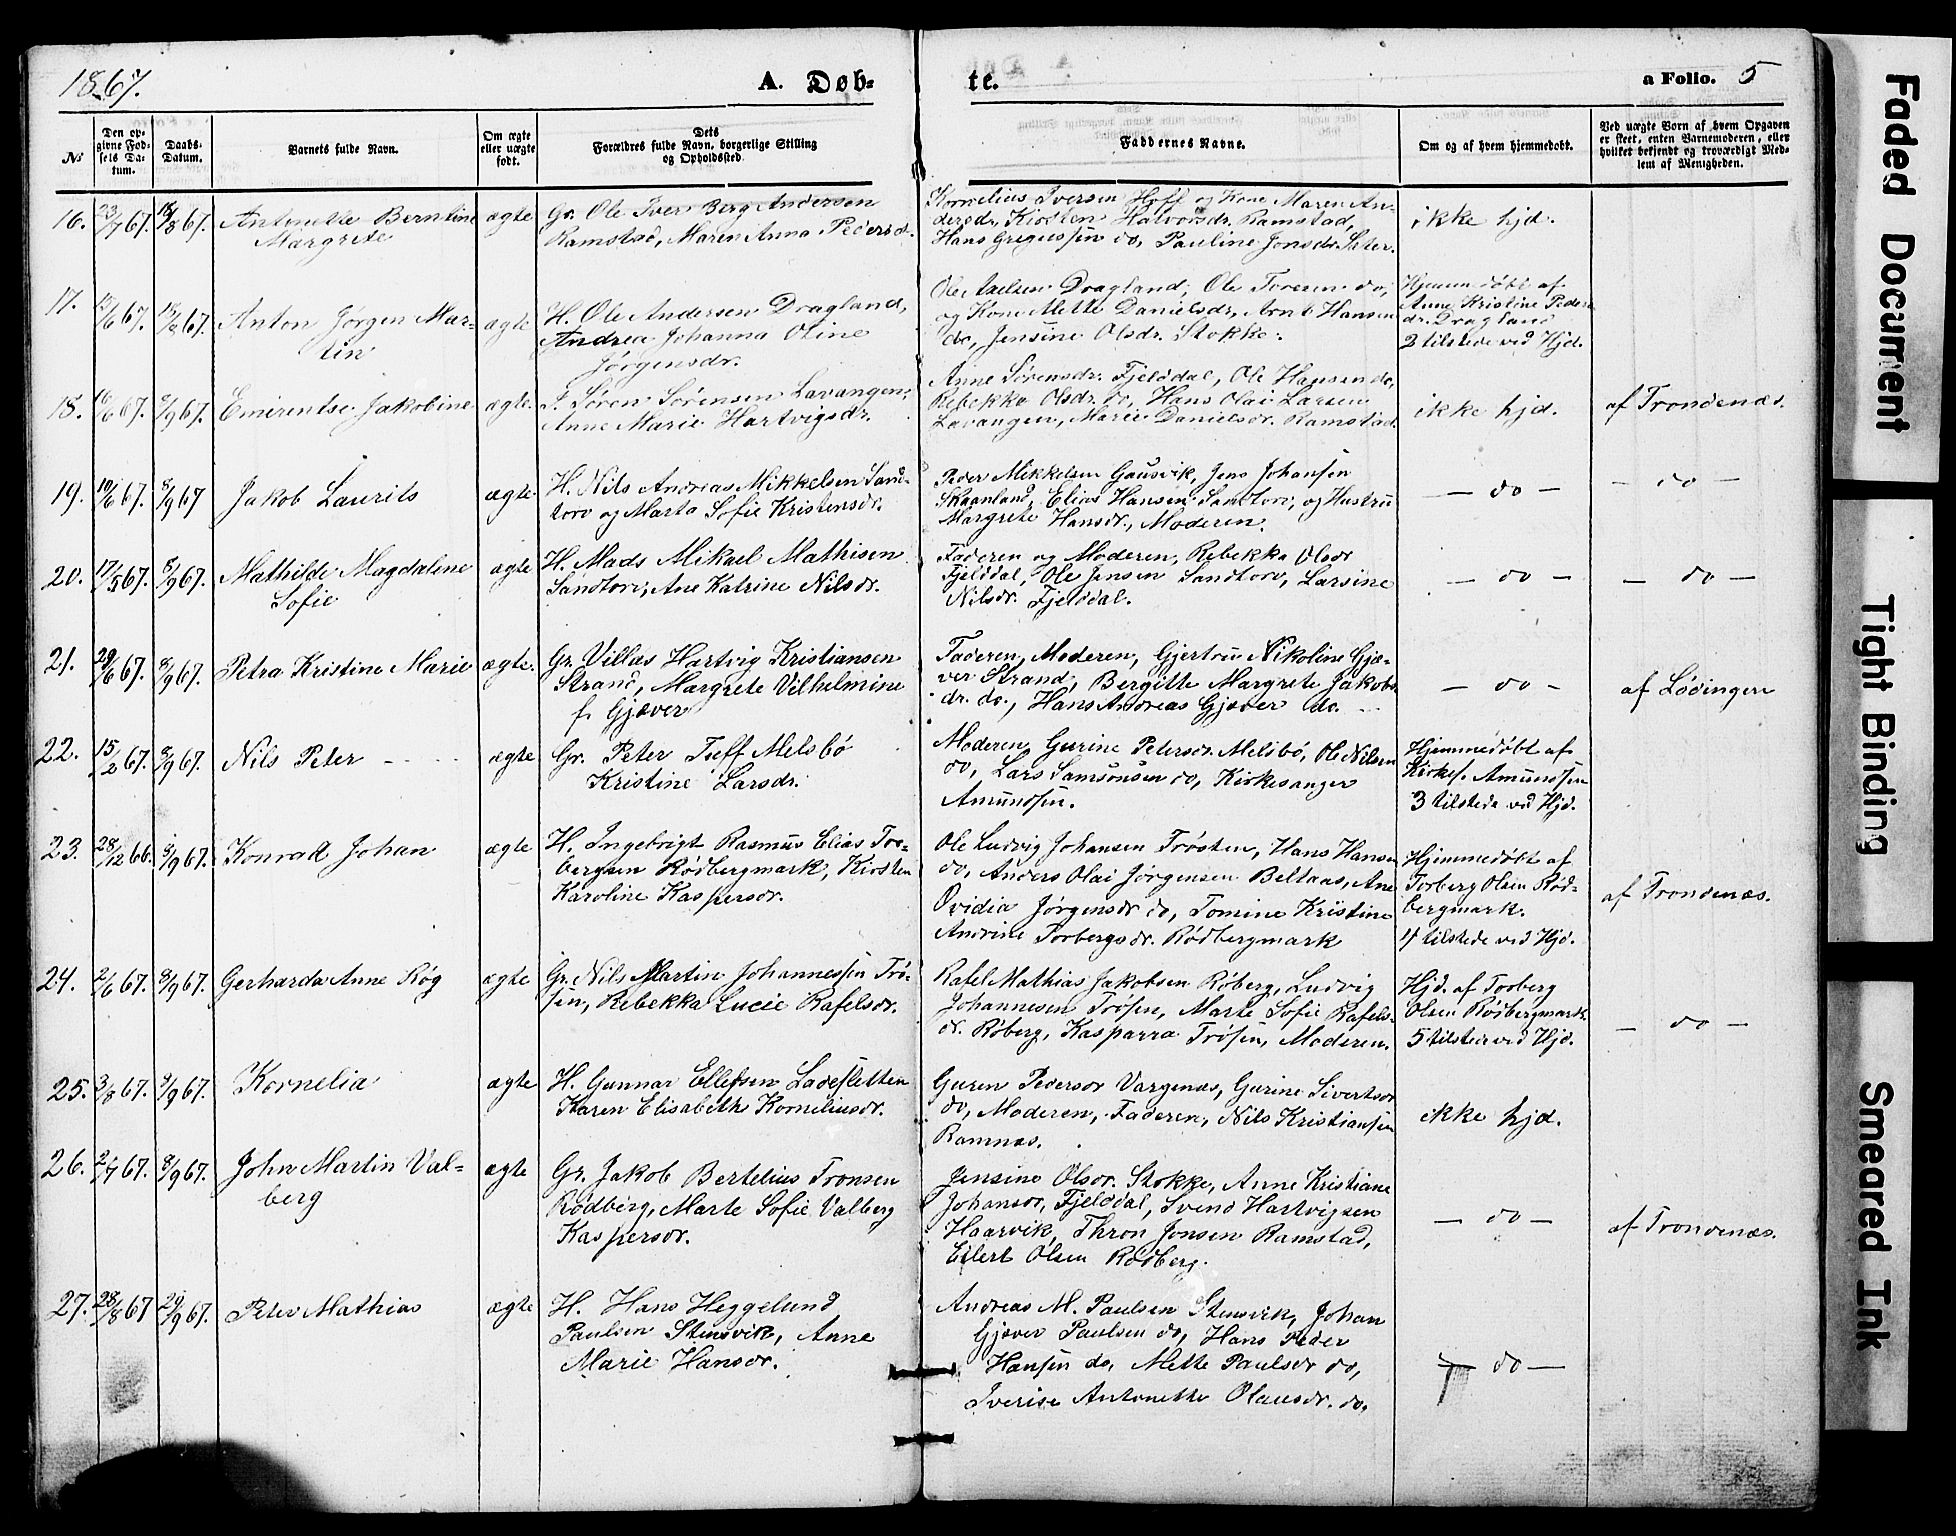 1867.
A. Døb-
te.
a Folio. 5
No
Den op-
givne Fød-
sels Da-
tum.
Daabs-
Datum.
Barnets fulde Navn.
Om ægte
eller uægte
født.
Dets
Forældres fulde Navn, borgerlige Stilling
og Opholdssted.
Faddernes Navne.
Om og af hvem hjemmedøbt.
Ved uægte Børn af hvem Opgaven
er skeet, enten Barnemoderen, eller
hvilket bekjendt og troværdigt Med-
lem af Menigheden.
16. 23/7 67. 18/8 67. Antonette Berntine
Margrete
ægte
Gr. Ole Iver Berg Andersen
Ramstad, Maren Anna Pedersd.
Kornelius Iversen Hoff og Kone Maren An-
dersdr, Kirsten Halvorsdr. Ramstad,
Hans Gregussen do, Pauline Jonsdr. Sæter.
ikke hjd.
17. /6 67. 18/8 67. Anton Jørgen Mar-
tin
ægte
H. Ole Andersen Dragland,
Andrea Johanna Oline
Jørgensdr.
Ole Axelsen Dragland, Ole Toresen do,
og Kone Mette Danielsdr, Arnt Hansen
do, Jensine Olsdr. Stokke.
Hjemmedøbt af
Anne Kristine Peders
dr. Dragland
2 tilstede ved Hjd.
18. 16/6 67. 8/9 67. Emirentse Jakobine
ægte
I. Søren Sørensen Lavangen,
Anne Marie Hartvigsdr.
Anne Sørensdr. Fjelddal, Ole Hansen do,
Rebekka Olsdr. do, Hans Olai Larsen
Lavangen, Marie Danielsdr. Ramstad
ikke hjd.
af Trondenæs.
19. 10/6 67. 8/9 67 Jakob Laurits
ægte
H. Nils Andreas Mikkelsen Sand-
torv og Marta Sofie Kristensdr.
Peder Mikkelsen Gausvik, Jens Johansen
Skaanland, Elias Hansen Sandtorv, og Hustru
Margrete Hansdr., Moderen.
— do —
— do —
20. 17/5 67. 8/9 67. Mathilde Magdalene
Sofie
ægte
H. Mads Mikael Mathisen
Sandtorv, Ane Katrine Nilsdr.
Faderen og Moderen, Rebekka Olsdr
Fjelddal, Ole Jensen Sandtorv, Larsine
Nilsdr. Fjelddal.
— do —
— do —
21. 29/6 67. 8/9 67. Petra Kristine Marie
ægte.
Gr. Villas Hartvig Kristiansen
Strand, Margrete Vilhelmine
f. Gjæver
Faderen, Moderen, Gjertru Nikoline Gjæ-
ver Strand, Bergitte Margrete Jakobs
dr. do., Hans Andreas Gjæver do.
— do —
af Lødingen
22. 15/2 67. 8/9 67. Nils Peter
ægte
Gr. Peter Zeff Melsbø
Kristine Larsdr.
Moderen, Gurine Petersdr. Melsbø, Ole Nilsen
do, Lars Samsonsen do, Kirkesanger
Amundsen.
Hjemmedøbt af
Kirkes. Amundsen
3 tilstede ved Hjd.
23. 28/12 66. 8/9 67. Konrad Johan
ægte
H. Ingebrigt Rasmus Elias Tor-
bergsen Rødbergmark, Kirsten
Karoline Kaspersdr.
Ole Ludvig Johansen Trøsten, Hans Hansen
do, Anders Olai Jørgensen Beltaas, Ane
Ovidia Jørgensdr do, Tomine Kristine
Andrine Torbergsdr. Rødbergmark
Hjemmedøbt af
Torberg Olsen Rød-
bergmark.
4 tilstede ved Hjd.
af Trondenæs.
24. 2/6 67. 8/9 67. Gerharda Anne Røg
ægte
Gr. Nils Martin Johannessen Trø-
sen, Rebekka Lucie Rafelsdr.
Rafel Mathias Jakobsen Røberg, Ludvig
Johannesen Trøsen, Marte Sofie Rafels-
dr. Røberg, Kasparra Trøsen, Moderen.
Hjd. af Torberg
Olsen Rødbergmark.
5 tilstede ved Hjd.
— do —
25. 3/8 67. 8/9 67. Kornelia
ægte
H. Gunnar Ellefsen Ladesletten
Karen Elisabeth Korneliusdr.
Guren Pedersdr Vargenæs, Gurine Sivertsdr
do, Moderen, Faderen, Nils Kristiansen
Ramnæs.
ikke hjd.
26. 2/7 67. 8/9 67. John Martin Val-
berg
ægte
Gr. Jakob Bertelius Tronsen
Rødberg, Marte Sofie Valberg
Kaspersdr.
Jensine Olsdr. Stokke, Anne Kristiane
Johansdr, Fjelddal, Svend Hartvigsen
Haarvik, Thron Jonsen Ramstad,
Eilert Olsen Rødberg.
— do —
af Trondenæs.
27. 28/8 67 29/9 67. Peter Mathias
ægte
H. Hans Heggelund
Paulsen Stensvik, Anne
Marie Hansdr.
Andreas M. Paulsen Stensvik, Johan
Gjæver Paulsen do, Hans Peder
Hansen do, Mette Paulsdr do,
Iverise Antonette Olausdr. do,
— do —
Faded Document
Tight Binding
Smeared Ink